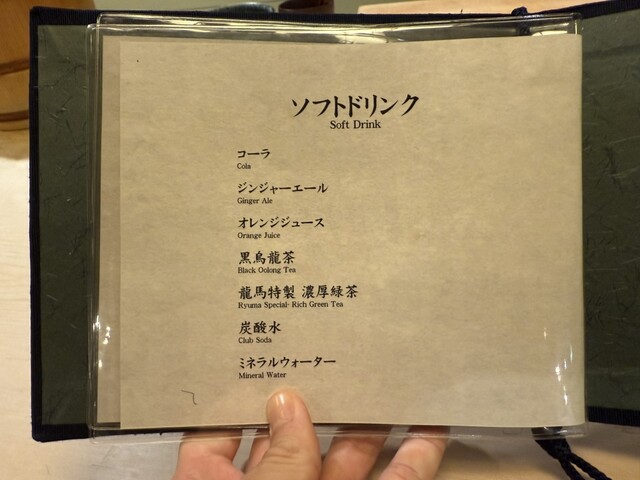 ソフトドリンク
Soft Drink
コーラ
Cola
ジンジャーエール
Ginger Ale
オレンジジュース
Orange Juice
黒烏龍茶
Black Oolong Tea
龍馬特製 濃厚緑茶
Ryuma Special- Rich Green Tea
炭酸水
Club Soda
ミネラルウォーター
Mineral Water